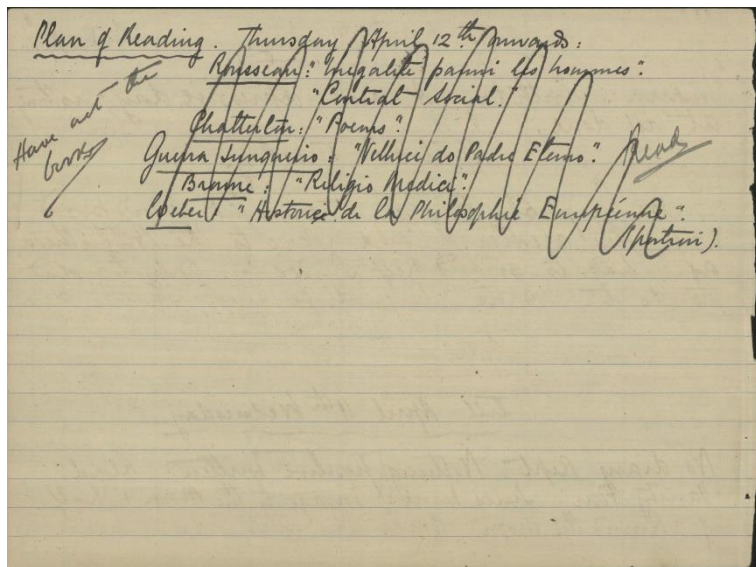 Plan of Reading. Thursday April 12th onwards:
Rousseau: "Inegalité parmi les hommes".
"Contrat Social."
Have not the book
Chatterton: "Poems".
Guerra Junqueiro: "Velhice do Padre Eterno". Read
Browne: "Religio Medici".
Weber: "Histoire de la Philosophie Européenne".